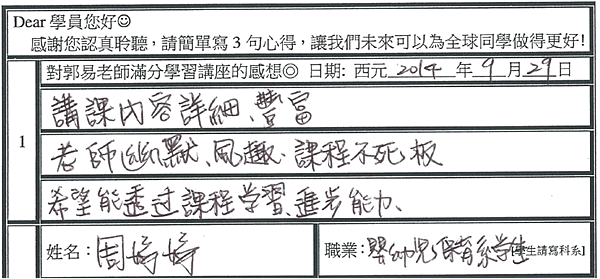 Dear 學員您好☺
感謝您認真聆聽，請簡單寫3句心得，讓我們未來可以為全球同學做得更好!
對郭易老師滿分學習講座的感想◎ 日期: 西元 2014 年 9 月 29 日
1
講課內容詳細、豐富
老師幽默、風趣、課程不死板
希望能透过課程学習、進步能力、
姓名: 周婷婷
職業: 嬰幼兒保育系学生 生請寫科系]